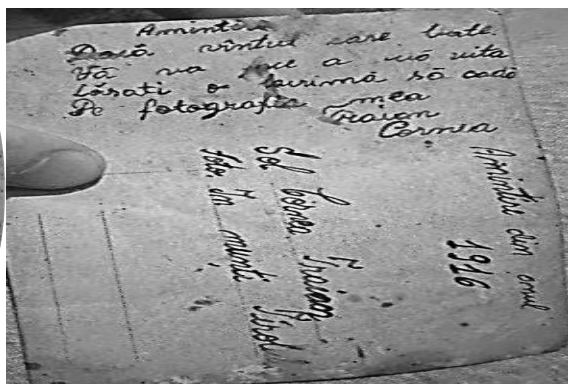 Amintire
Dacă vîntul care bate
Vă va face a mă uita
Lăsati o lacrimă să cadă
Pe fotografia mea
Traian
Cornea
Amintire din anul
1916
Sol Cornea Traian
foto în munti Tirol